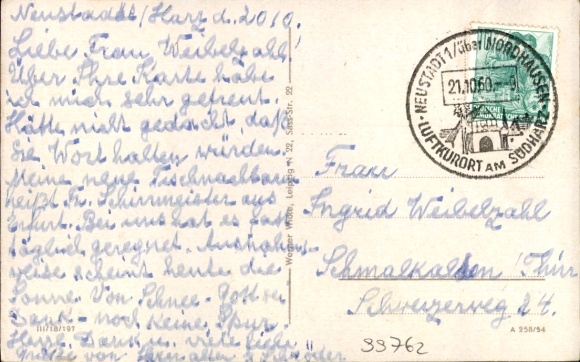 Neustadt/Harz d. 20.10.
Liebe Frau Weibelzahl!
Über Ihre Karte habe
ich mich sehr gefreut.
Hätte nicht gedacht daß
Sie Wort halten würden.
Meine neue Tischnachbarin
heißt Fr. Schirrmeister aus
Erfurt. Bei uns hat es fast
täglich geregnet. Ausnahms-
weise scheint heute die
Sonne. Von Schnee - Gott sei
Dank - noch keine Spur.
Herzl. Dank u. viele liebe
Grüße von
III/18/197
Werner Wicke, Leipzig N 22, Str. 22
NEUSTADT 1/über NORDHAUSEN
21.10.60
LUFTKURORT AM SÜDHARZ
Frau
Ingrid Weibelzahl
Schmalkalden/Thür
Schweizerweg 24.
A 258/54
99762